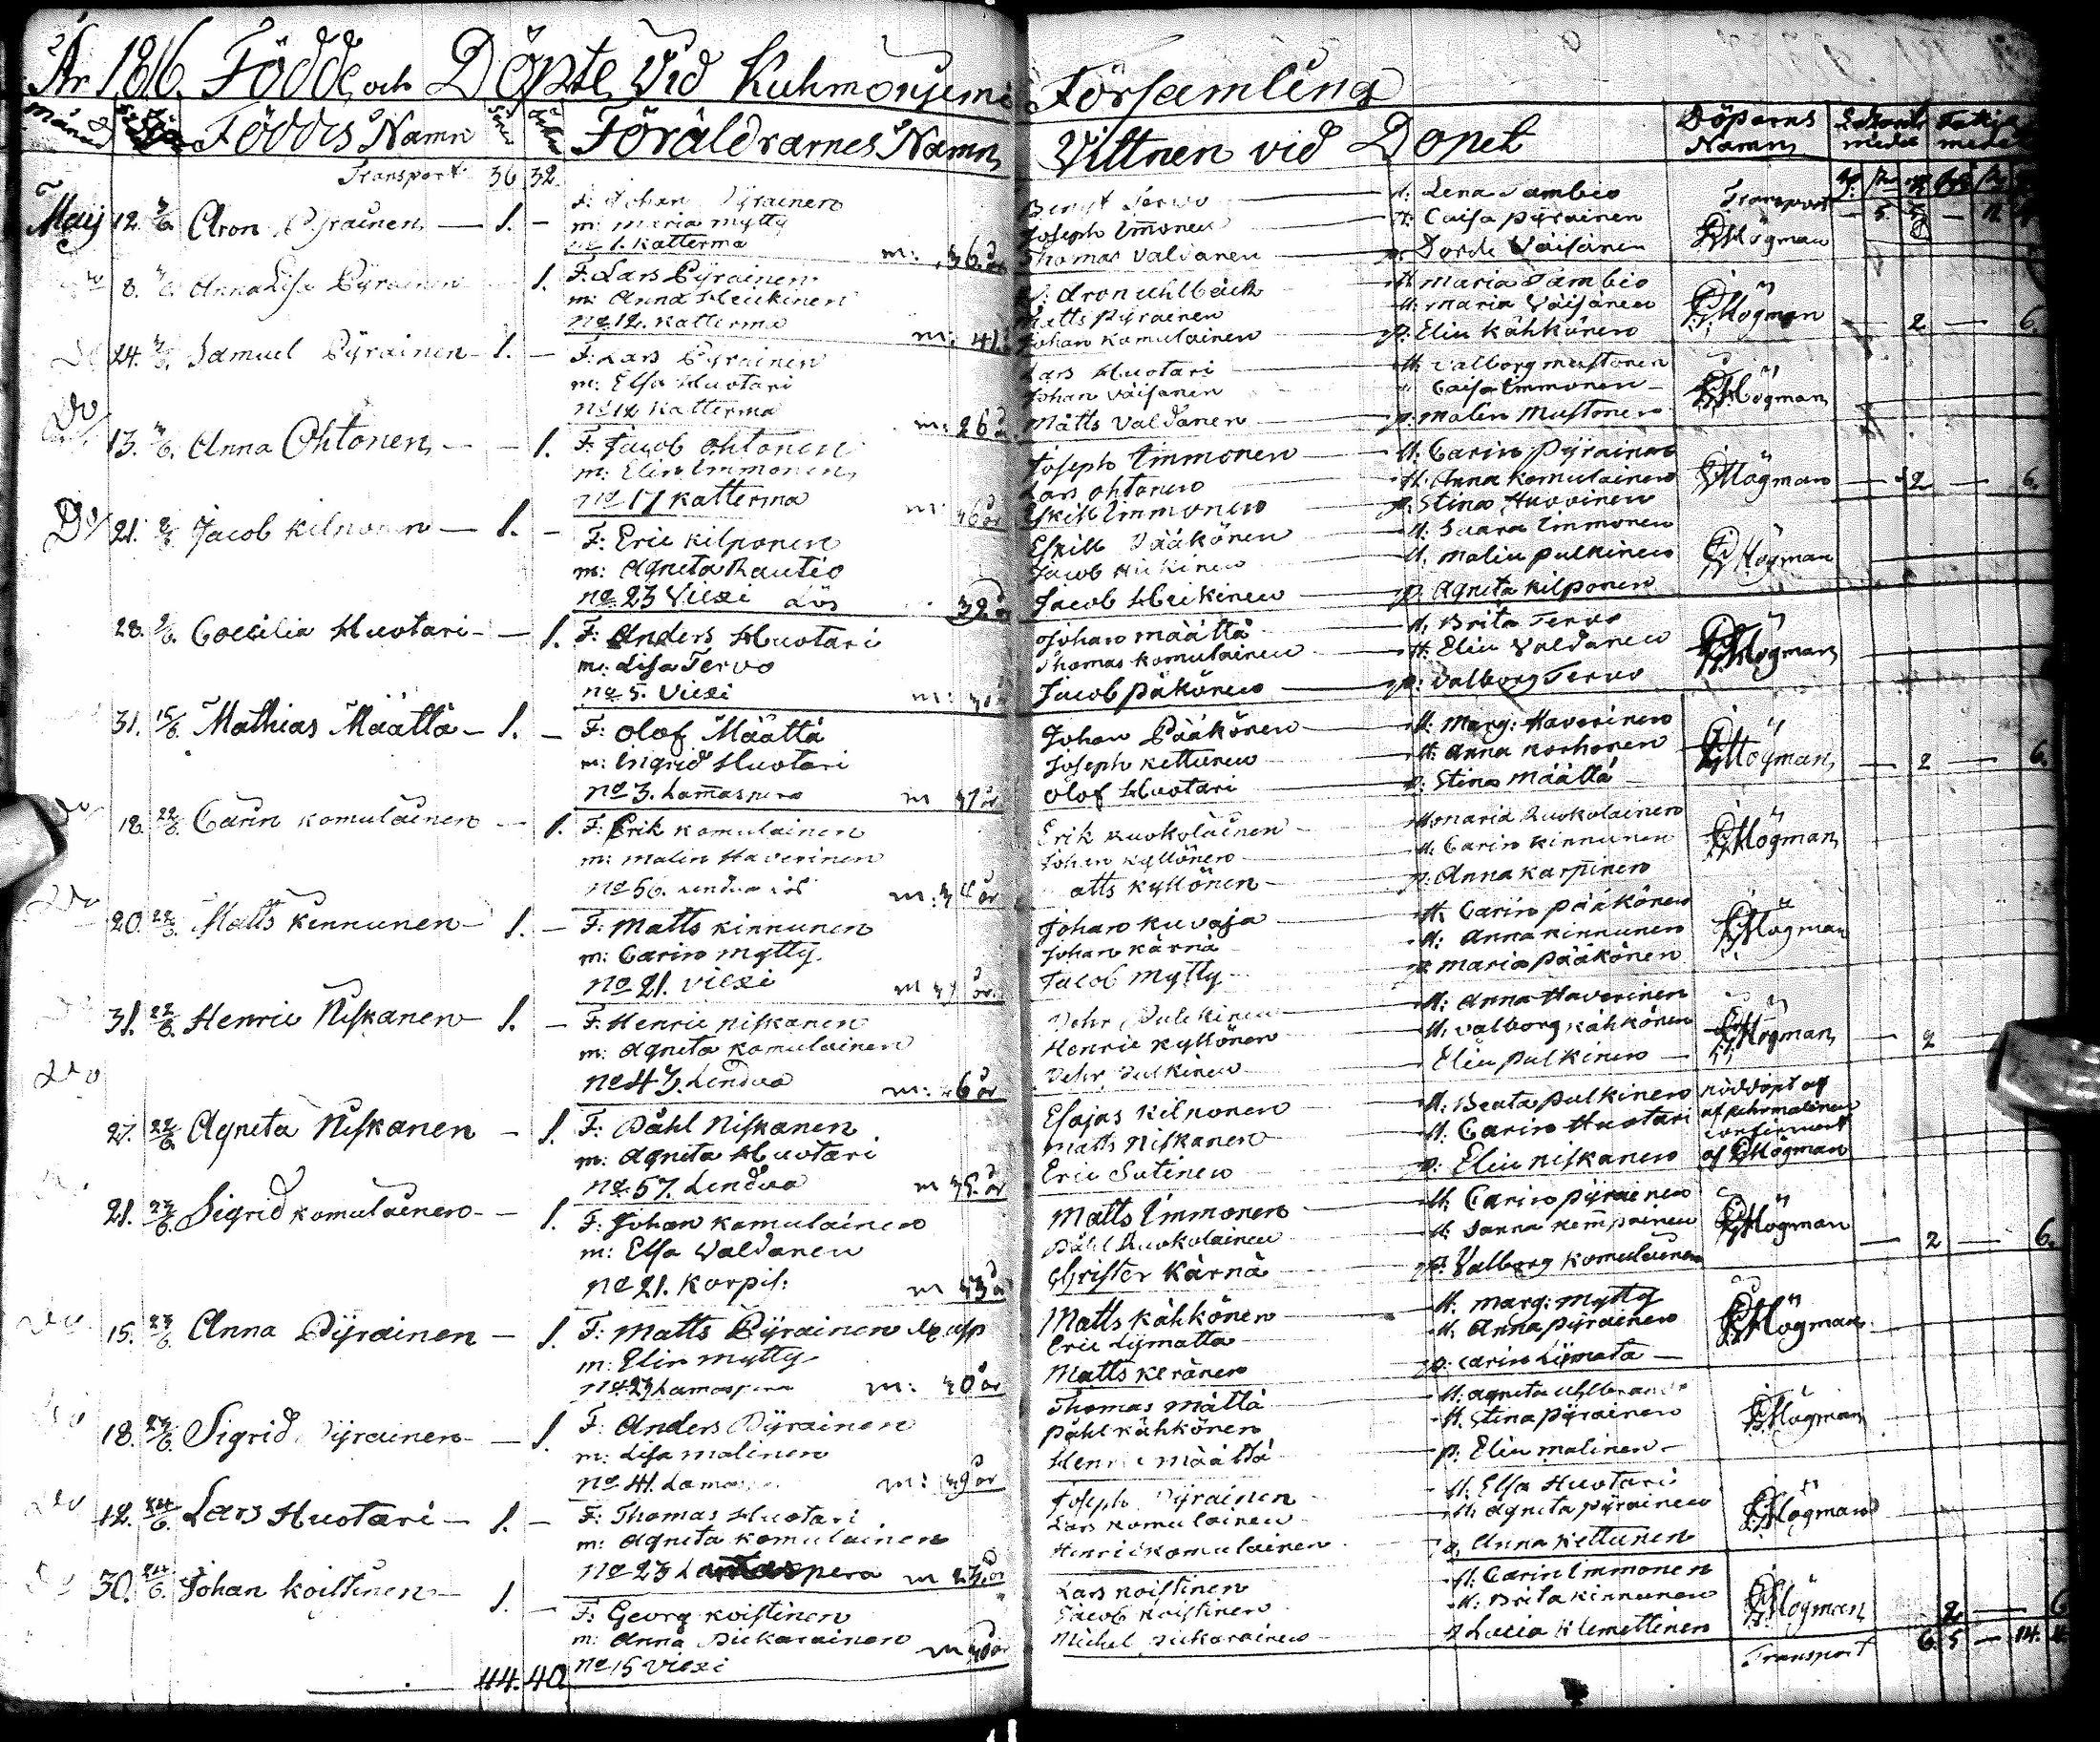 År 1816. Födde och Döpte Vid Kuhmoniemi Församling
Månad Föddes Namn Föräldrarnes Namn Vittnen vid Dopet Döparens Namn
Transport 36 32 Transport
Maij 12. Aron Pyrainen 1. –
F: Johan Pyrainen
m: Maria Mytty
no 1. Katterma m: 36 år
Bengt Tervo H. Lena Tambio
Joseph Immonen H. Caisa Pyrainen
Thomas Valdanen p. Dorde Väisänen
Högman
8. Anna Lisa Pyrainen 1.
F: Lars Pyrainen
m: Anna Heikinen
no 12. Katterma m: 41
Aron Uhlbäck H. Maria Tambio
Matts Pyrainen H. Maria Väisänen
Johan Komulainen p: Elin Kähkönen
Högman – 2 – 6.
24. Samuel Pyrainen 1. –
F: Lars Pyrainen
m: Elsa Huotari
no 12 Katterma m: 26 år
Lars Huotari H. Valborg Mustonen
Johan Väisänen Caisa Immonen
Matts Valdanen p. Malin Mustonen
Högman
Do 13. Anna Ohtonen 1.
F: Jacob Ohtonen
m: Elin Immonen
no 17 Katterma m: 46 år
Joseph Immonen H. Carin Pyrainen
Lars Ohtonen H. Anna Komulainen
Eskill Immonen p. Stina Huovinen
Högman – 2 – 6.
Do 21. Jacob Kilponen 1. –
F: Eric Kilponen
m: Agneta Rautio
no 23 Viexi Lös 32 år
Eskill Pääkönen H. Saara Immonen
Jacob Heikinen H. Malin Pulkinen
Jacob Heikinen p. Agneta Kilponen
Högman
28. Coecilia Huotari 1.
F: Anders Huotari
m: Lisa Tervo
no 5. Viexi m:
Johan Määttä H. Brita Tervo
Thomas Komulainen H: Elin Valdanen
Jacob Päkönen p: Valborg Tervo
Högman
31. 15/6. Mathias Määttä 1. –
F: Olof Määttä
m: Ingrid Huotari
no 3. Lamaspera m 47 år
Johan Pääkönen H. Marg: Haverinen
Joseph Kettunen H. Anna Korhonen
Olof Huotari p: Stina Määttä
Högman – 2 – 6.
Do 18. 22/6. Carin Komulainen 1.
F: Erik Komulainen
m: Malin Haverinen
no 56. m: 34 år
Erik Ruokolainen H. Maria Ruokolainen
Johan Kyllönen H. Carin Kinnunen
Matts Kyllönen p: Anna Karpinen
Högman
Do 20. 22/6. Matts Kinnunen 1. –
F: Matts Kinnunen
m: Carin Mytty.
no 21. Viexi m år
Johan Kuvaja H. Carin Pääkönen
Johan Kärnä H: Anna Kinnunen
Jacob Mytty p: Maria Pääkönen
Högman
31. 22/6. Henric Niskanen 1. –
F: Henric Niskanen
m: Agneta Komulainen
no 43. Lendua m: 26 år
Pehr Pulckinen H: Anna Haverinen
Henric Kyllönen H. Valborg Kähkönen
Pehr Pulkinen Elin Pulkinen
Högman – 2
Do 27. 22/6. Agneta Niskanen – 1.
F: Påhl Niskanen
m: Agneta Huotari
no 57. Lendua m 35. år
Esajas Kilponen H. Beata Pulkinen
Matts Niskanen H. Carin Huotari
Eric Sutinen p: Elin Niskanen
nöddöpt af
af Pehr Malinen
confirmerat
af Högman
21. 23/6. Sigrid Komulainen 1.
F: Johan Komulainen
m: Elsa Valdanen
no 21. Korpis: m 43 år
Matts Immonen H. Carin Pyrainen
Påhl Ruokolainen H. Sanna Kemppainen
Christer Kärnä p: Valborg Komulainen
Högman – 2 – 6.
Do 15. 23/6. Anna Pyrainen – 1.
F: Matts Pyrainen
m: Elin Mytty
no 23 Lamaspera m: 40 år
Matts Kähkönen H. Marg: Mytty
Eric Lymatta H. Anna Pyrainen
Matts Keränen p: Carin Lymata
Högman
Do 18. 23/6. Sigrid Pyrainen – 1.
F: Anders Pyrainen
m: Lisa Malinen
no 41. Lamas m: 39 år
Thomas Mättä H. Agneta Uhlbrandt
Påhl Kähkönen H. Stina Pyrainen
Henric Määttä p. Elin Malinen
Högman
Do 12. 24/6. Lars Huotari 1. –
F: Thomas Huotari
m: Agneta Komulainen
no 23 Lamaspera m 27 år
Joseph Pyrainen H. Elsa Huotari
Lars Komulainen H. Agneta Pyrainen
Henric Komulainen p. Anna Kettunen
Högman
Do 30. 24/6. Johan Koistinen 1. –
F: Georg Koistinen
m: Anna Piikarainen m 40 år
no 15 Viexi
Lars Koistinen H. Carin Immonen
Jacob Koistinen H. Brita Kinnunen
Michel Piikarainen p Lucia Klemettinen
Högman 2 – 6
44. 40 Transport 6. 5 – 14.